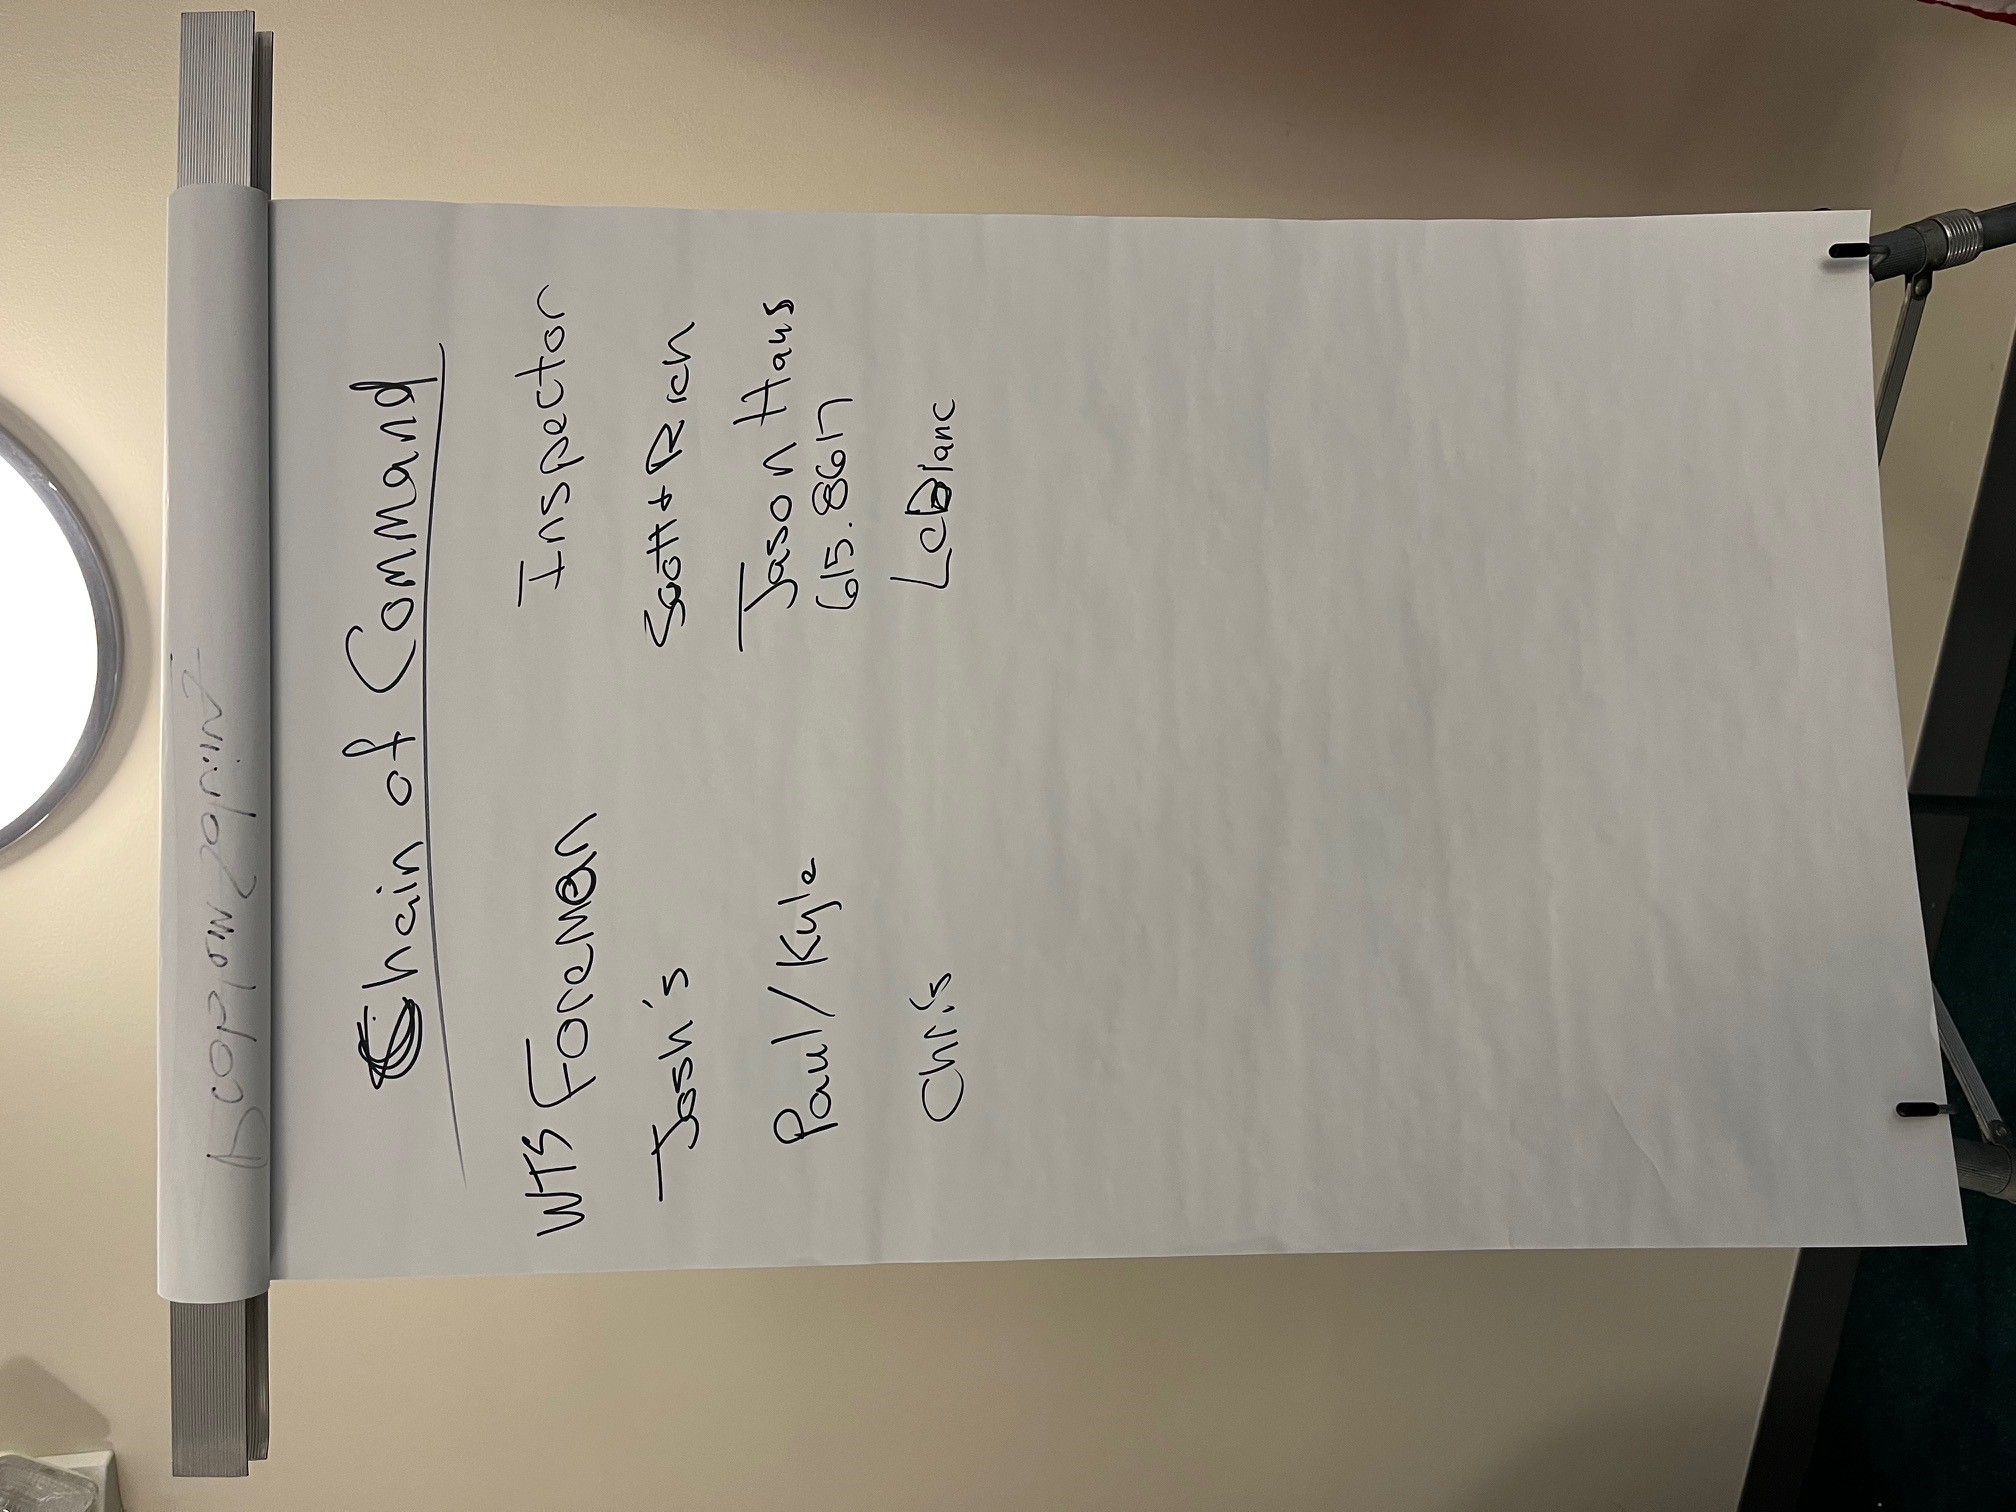 Chain of Command
WTS Foreman Inspector
Josh's Scott + Rich
Paul / Kyle Jason Haus
615.8617
Chris LeBlanc